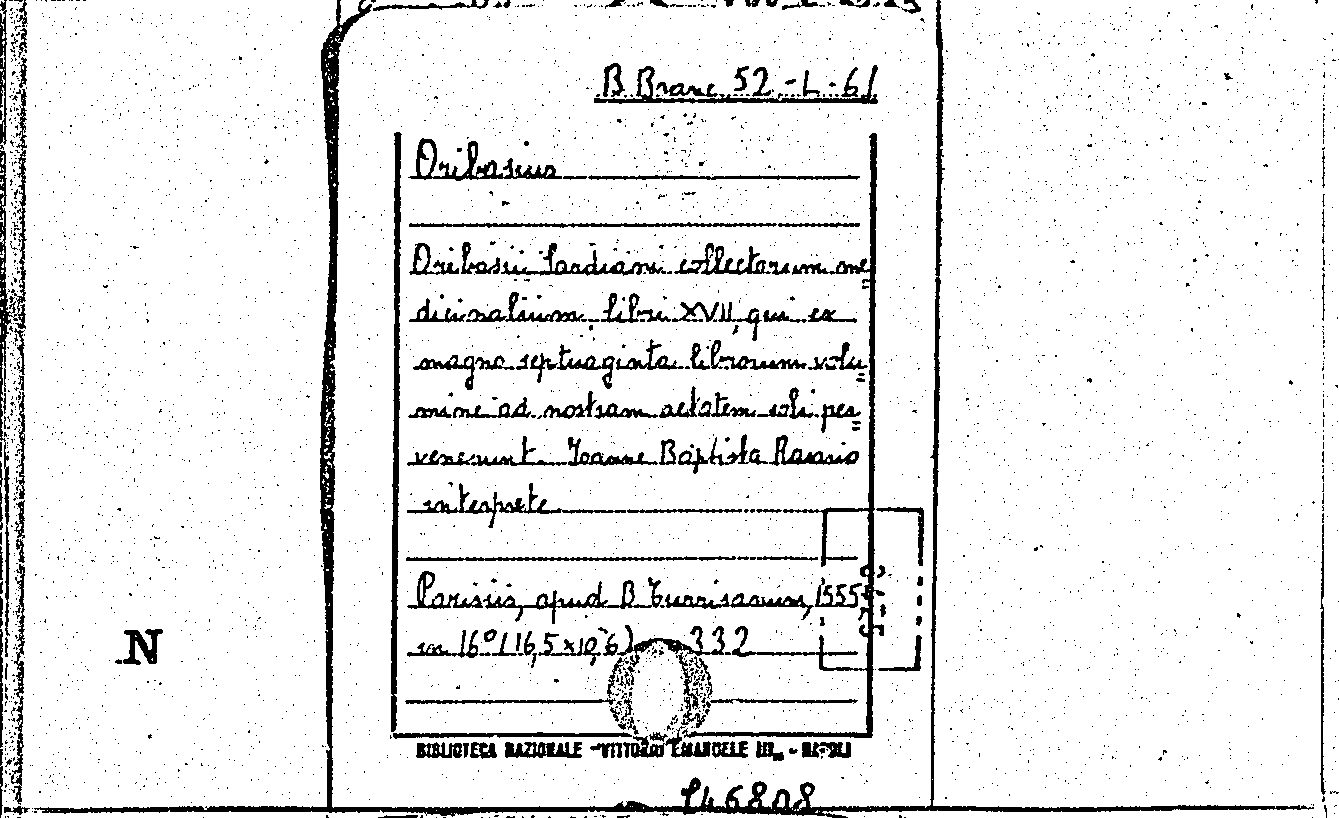 B Branc 52-L-61
Oribasius
Oribasii Sardiani collectorum me=
dicinalium, libri XVII, qui ex
magno septuaginta librorum volu=
mine ad nostram aetatem soli per=
venerunt. Ioanne Baptista Rasario
interprete
Parisiis, apud B Turrisanum, 1555
in 16° (16,5 x 10,6) 332
N
BIBLIOTECA NAZIONALE "VITTORIO EMANUELE III" - NAPOLI
146808